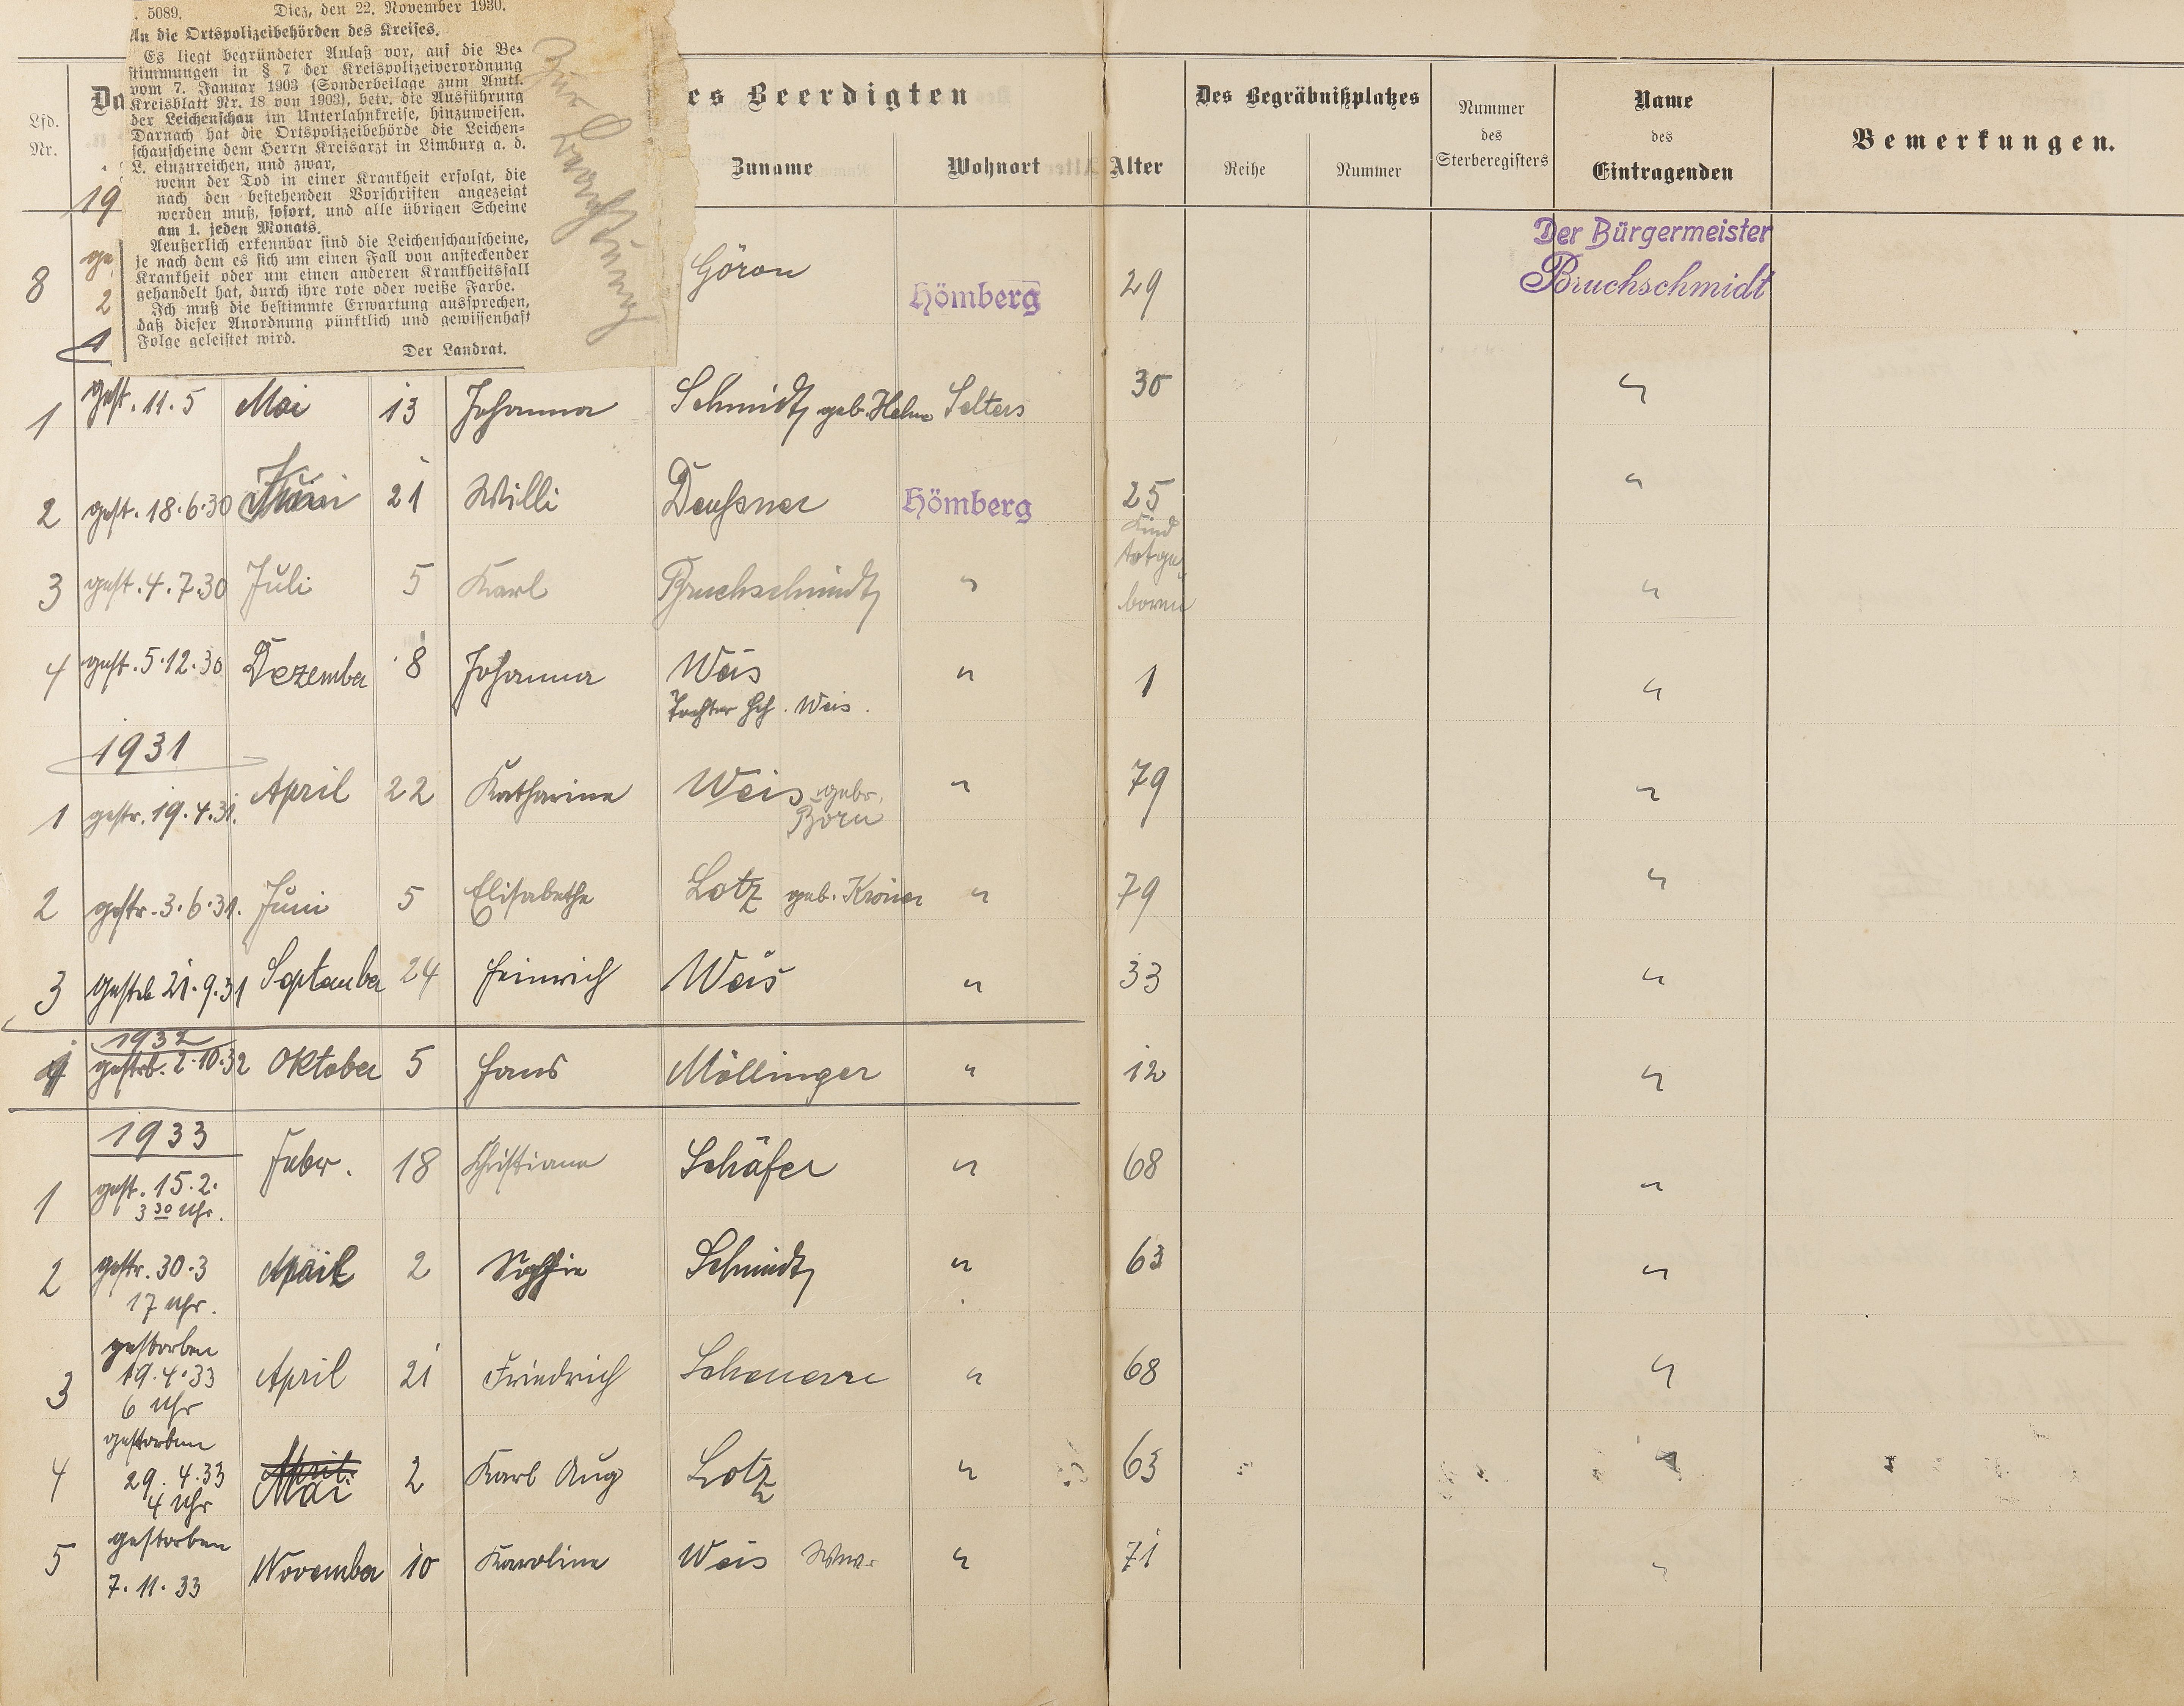 . 5089. Diez, den 22. November 1930.
An die Ortspolizeibehörden des Kreises.
Es liegt begründeter Anlaß vor, auf die Be-
stimmungen in § 7 der Kreispolizeiverordnung
vom 7. Januar 1903 (Sonderbeilage zum Amtl.
Kreisblatt Nr. 18 von 1903), betr. die Ausführung
der Leichenschau im Unterlahnkreise, hinzuweisen.
Darnach hat die Ortspolizeibehörde die Leichen-
schauscheine dem Herrn Kreisarzt in Limburg a. d.
L. einzureichen, und zwar,
wenn der Tod in einer Krankheit erfolgt, die
nach den bestehenden Vorschriften angezeigt
werden muß, sofort, und alle übrigen Scheine
am 1. jeden Monats.
Aeußerlich erkennbar sind die Leichenschauscheine,
je nach dem es sich um einen Fall von ansteckender
Krankheit oder um einen anderen Krankheitsfall
gehandelt hat, durch ihre rote oder weiße Farbe.
Ich muß die bestimmte Erwartung aussprechen,
daß dieser Anordnung pünktlich und gewissenhaft
Folge geleistet wird.
Der Landrat.
Zur Beachtung
Lfd. Nr. Da es Beerdigten Zuname Wohnort Alter Des Begräbnißplatzes Reihe Nummer Nummer des Sterberegisters Name des Eintragenden Bemerkungen.
19
8 ge 2 Göron Hömberg 29 Der Bürgermeister Bruchschmidt
1
1 gest. 11.5 Mai 13 Johanna Schmidt geb. Helm Selters 30 "
2 gest. 18.6.30 Juni 21 Willi Deußner Hömberg 25 "
3 gest. 4.7.30 Juli 5 Karl Bruchschmidt " Kind totgeboren "
4 gest. 5.12.30 Dezember 8 Johanna Weis " 1 "
Tochter Hch. Weis.
1931
1 gestr. 19.4.31. April 22 Katharina Weis gebr. Born " 79 "
2 gestr. 3.6.31. Juni 5 Elisabethe Lotz geb. Kröner " 79 "
3 gestb 21.9.31 September 24 Heinrich Weis " 33 "
1932
1 gestrb. 2.10.32 Oktober 5 Hans Möllinger " 12 "
1933
1 gest. 15.2. 3 30 Uhr. Febr. 18 Christiane Schäfer " 68 "
2 gestr. 30.3 17 Uhr. April 2 Sophie Schmidt " 63 "
3 gestorben 19.4.33 6 Uhr April 21 Friedrich Scheuern " 68 "
4 gestorben 29.4.33 4 Uhr April Mai 2 Karl Aug Lotz " 63 "
5 gestorben 7.11.33 November 10 Karoline Weis Wwe. " 71 "